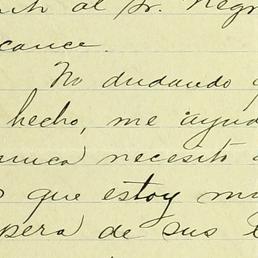 al Sr. Negr
cance.
No dudando
hecho, me ayud
nunca necesito
que estoy m
pera de sus